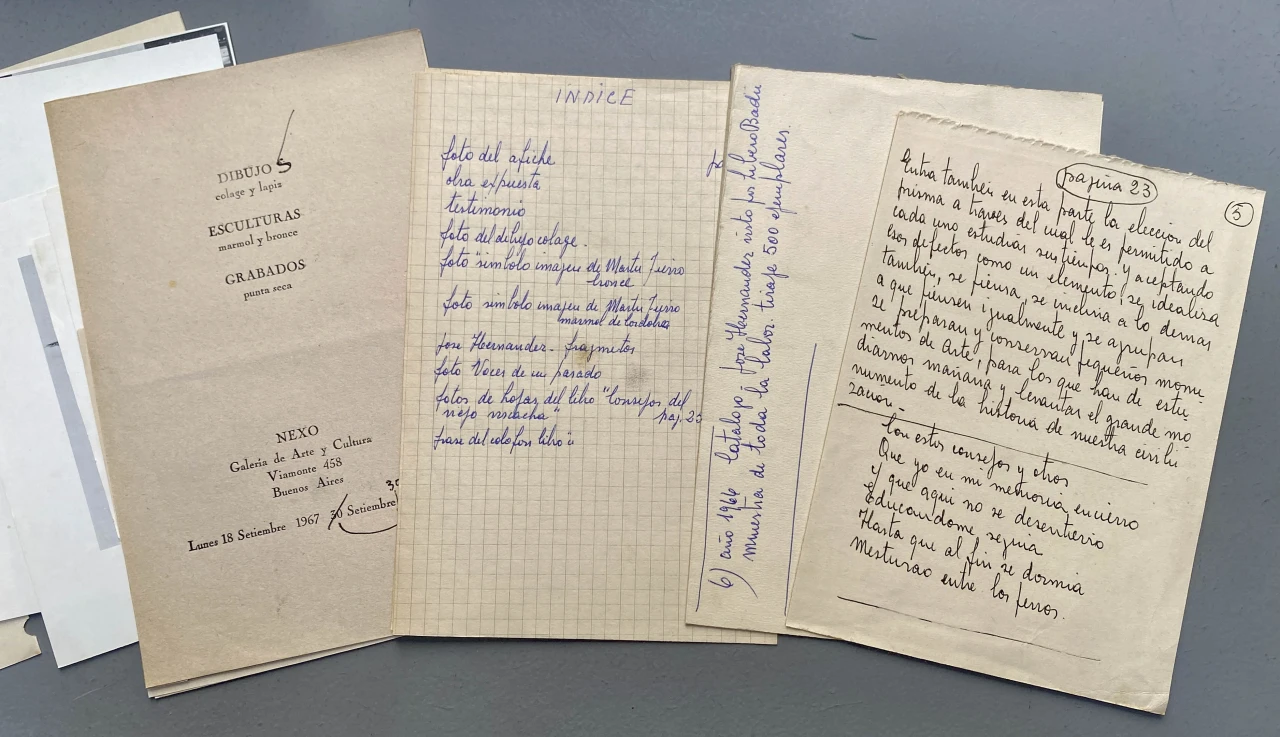 DIBUJOS
colage y lapiz
ESCULTURAS
marmol y bronce
GRABADOS
punta seca
NEXO
Galería de Arte y Cultura
Viamonte 458
Buenos Aires
Lunes 18 Setiembre 1967 30 Setiembre
INDICE
foto del afiche
obra expuesta
testimonio
foto del dibujo colage.
foto simbolo imagen de Martin Fierro
bronce
foto simbolo imagen de Martin Fierro
marmol de
Jose Hernandez - fragmetos
foto Voces de un pasado
fotos de hojas del libro "Consejos del
viejo viscacha" pag. 23
frase del colofon libro
6) año 1966 Catalogo Jose Hernandez visto por Libero Badii
muestra de toda la labor. tiraje 500 ejemplares.
pagina 23
5
Entra tambien en esta parte la eleccion del
prisma a traves del cual le es permitido a
cada uno estudiar sus tiempos. y aceptando
esos defectos como un elemento, se idealiza
tambien, se piensa, se inclina a lo demas
a que piensen igualmente y se agrupan
se preparan y conservan pequeños monu
mentos de Arte, para los que han de estu
diarnos mañana y levantar el grande mo
numento de la historia de nuestra civili
zacion.
Con estos consejos y otros
Que yo en mi memoria encierro
Y que aqui no se desentierro
Educandome seguia
Hasta que al fin se dormia
Mesturao entre los perros.